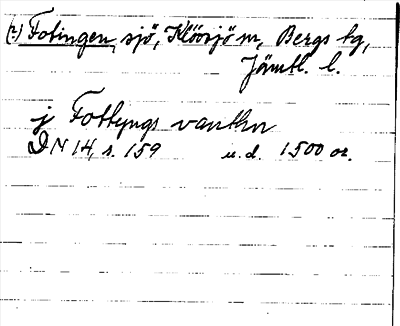 (2) Fotingen, sjö, Klövsjö sn, Bergs tg,
Jämtl. l.
j Fottyngs vanthn
DN 14, s. 159 u.d. 1500 or.